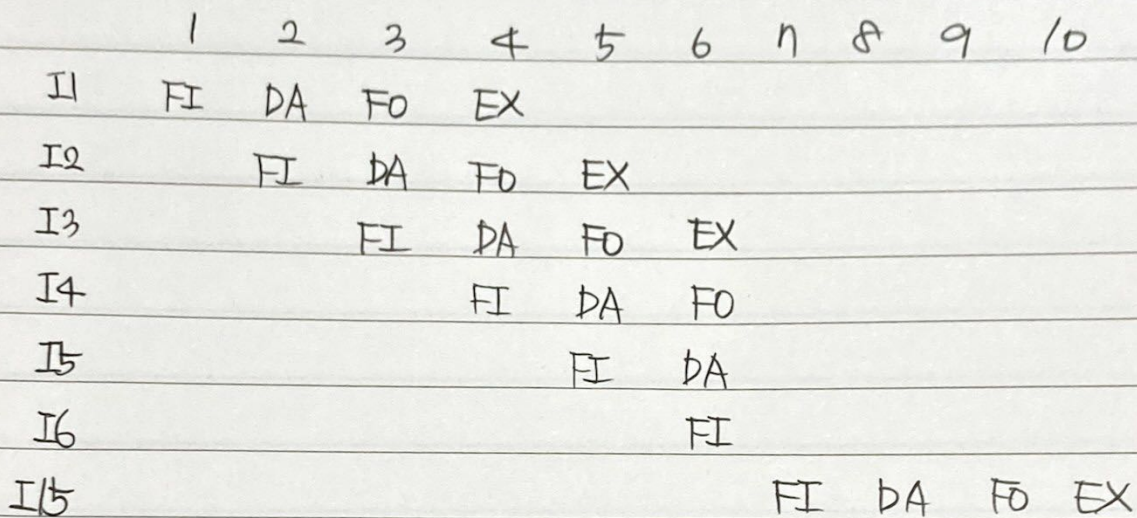 1 2 3 4 5 6 7 8 9 10
I1 FI DA FO EX
I2 FI DA FO EX
I3 FI DA FO EX
I4 FI DA FO
I5 FI DA
I6 FI
I15 FI DA FO EX